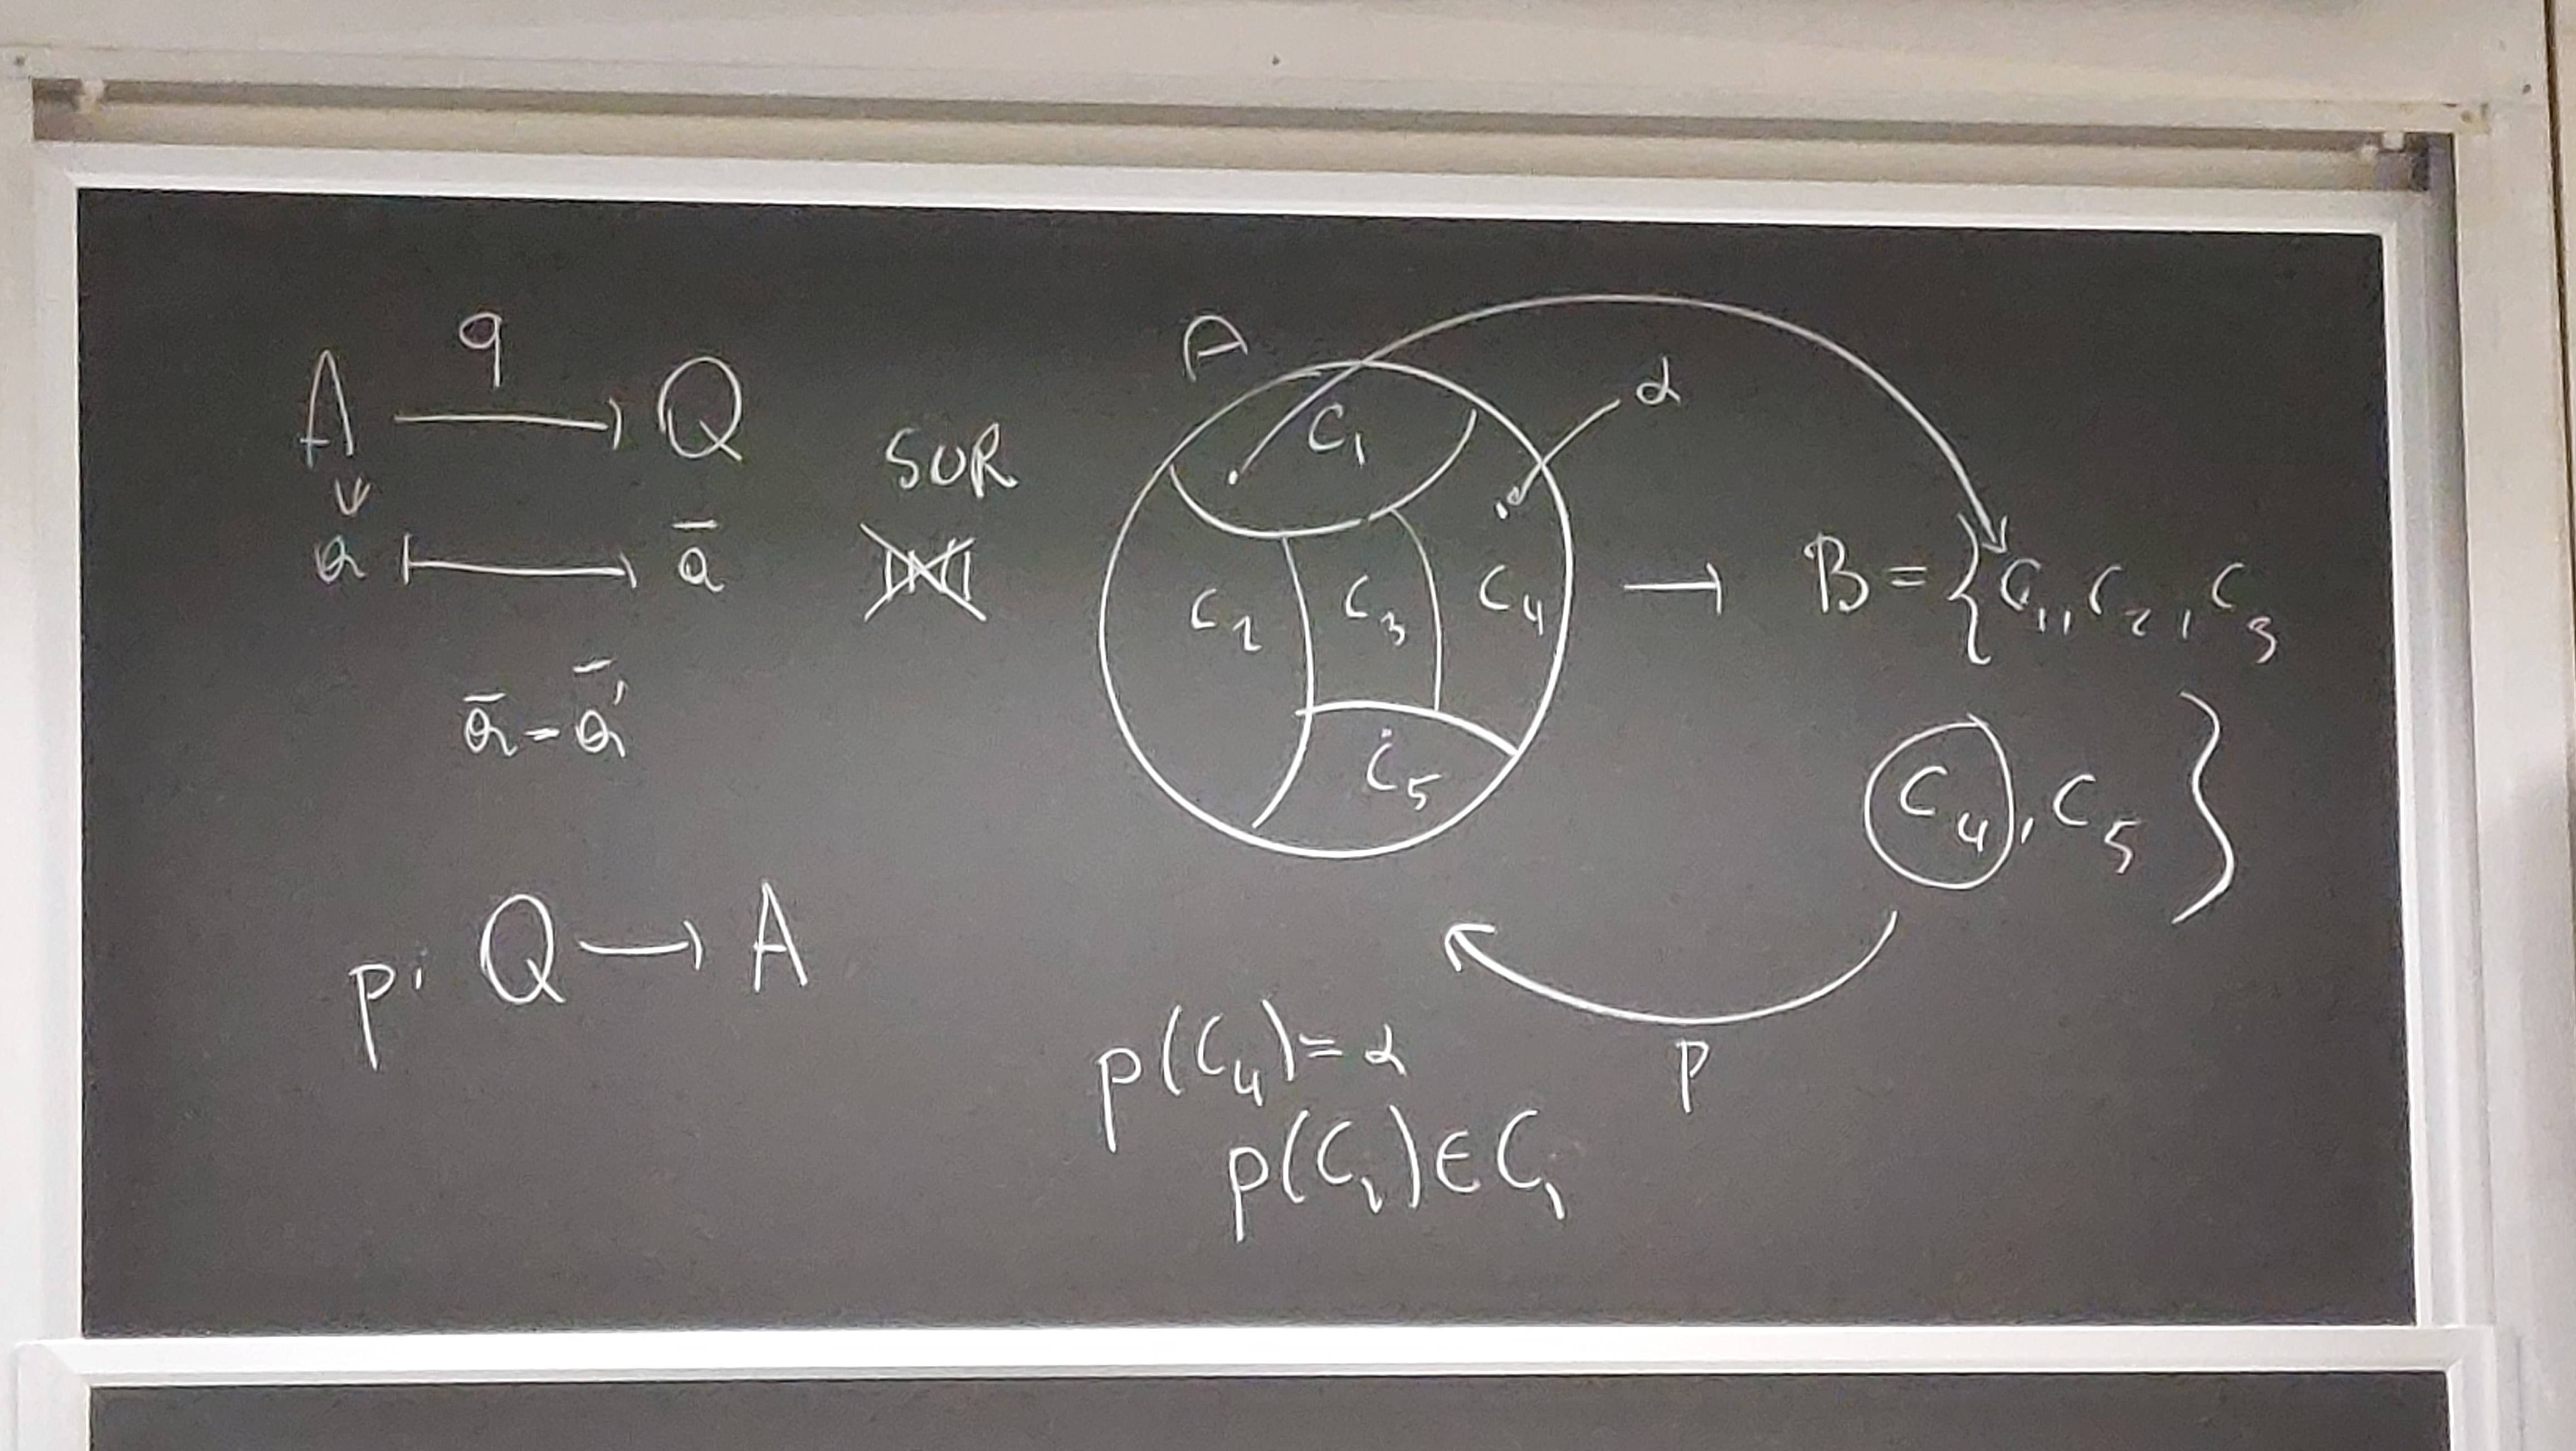 A ⟶ Q
q
a ⟼ ā
SUR
INI
ā = ā'
p: Q ⟶ A
A
α
C₁
C₂ C₃ C₄
C₅
→ B = {C₁, C₂, C₃
C₄, C₅}
p
p(C₄) = α
p(C₁) ∈ C₁